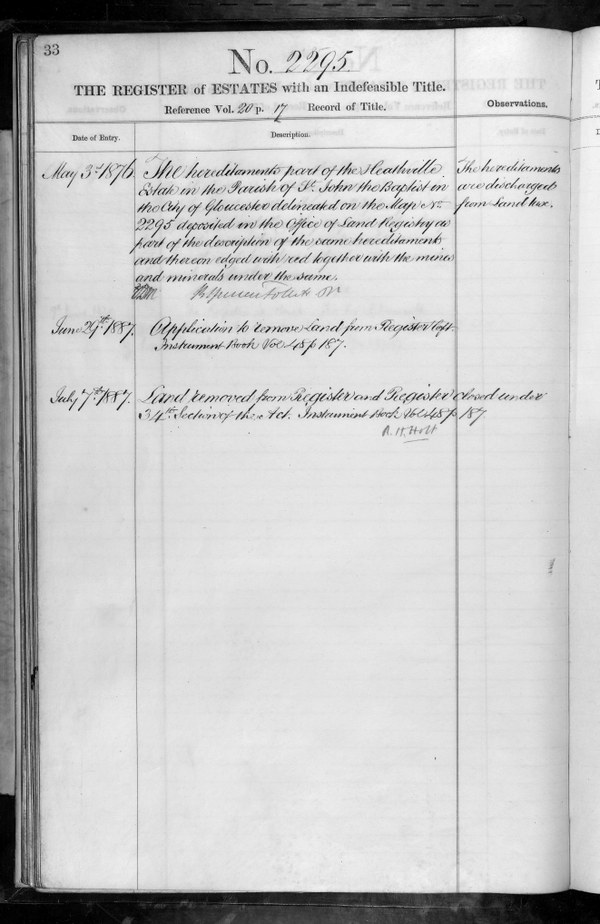 33
No. 2295.
THE REGISTER of ESTATES with an Indefeasible Title.
Reference Vol. 20 p. 17 Record of Title.
Observations.
Date of Entry.
Description.
May 3d 1876.
The hereditaments part of the Heathville
Estate in the Parish of St. John the Baptist in
the City of Gloucester delineated on the Map No.
2295 deposited in the Office of Land Registry as
part of the description of the same hereditaments
and thereon edged with red together with the mines
and minerals under the same.
The hereditaments
are discharged
from Land tax.
June 29th 1887.
Application to remove Land from Register left
Instrument Book Vol. 48 p 187.
July 7th 1887.
Land removed from Register and Register closed under
34th Section of the Act. Instrument Book Vol. 48 p 187
R. H. Holt